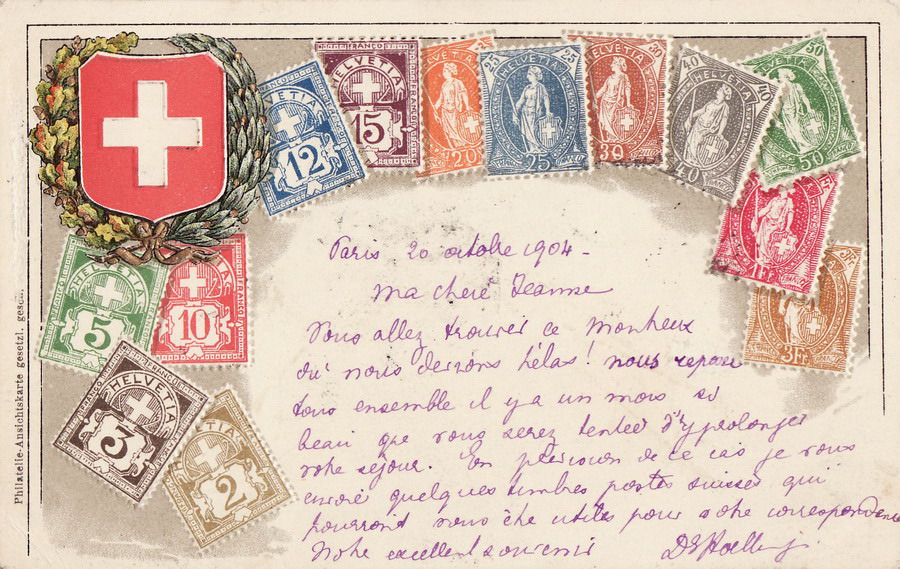 HELVETIA
12
FRANCO
HELVETIA
15
HELVETIA
20
25 25
HELVETIA
25
30
HELVETIA
30
40 40
HELVETIA
40
50
HELVETIA
50
1Fr
3Fr
HELVETIA
5
HELVETIA
FRANCO
10
FRANCO
HELVETIA
3
HELVETIA
2
Philatelie-Ansichtskarte gesetzl. gesch.
Paris 20 octobre 1904 -
Ma chère Jeanne
Vous allez trouver ce Montreux
où nous devions hélas! nous
tous ensemble il y a un mois si
beau que vous serez tentée d'y prolonger
votre séjour. En prévision de ce cas je vous
envoie quelques timbres postes suisses qui
pourront vous être utiles pour votre correspondance
Notre excellent souvenir